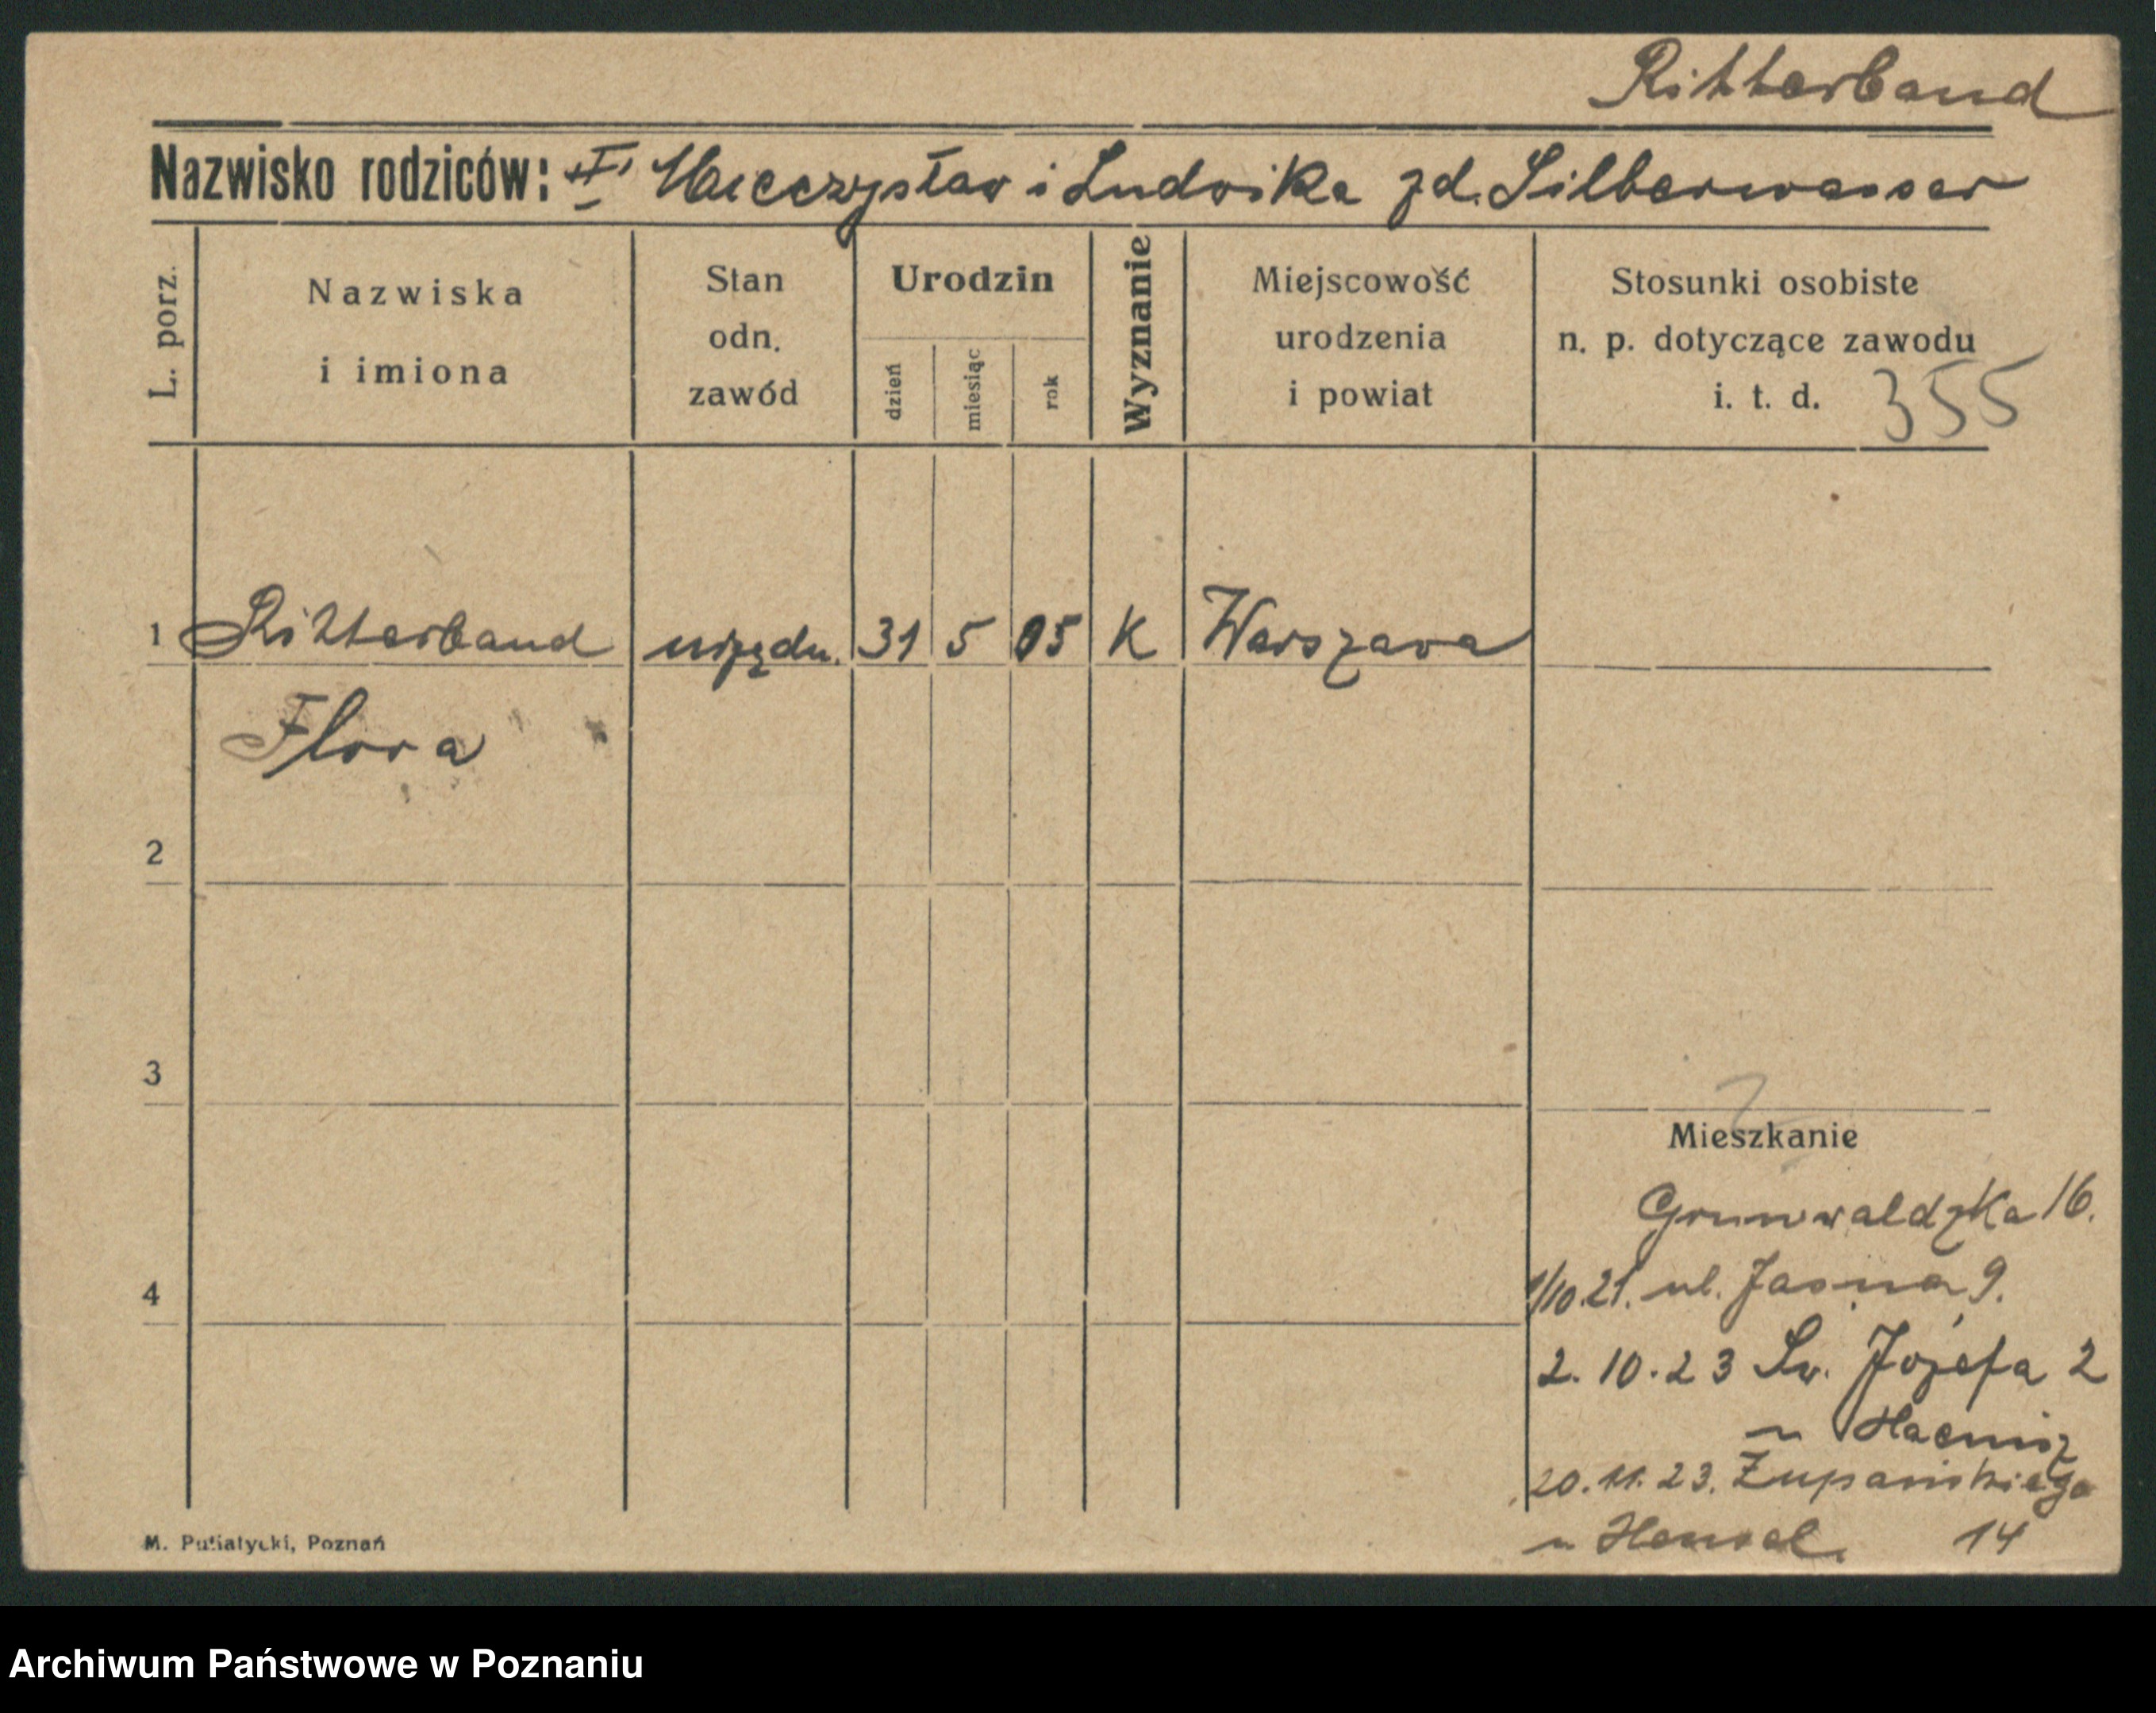 Ritterband
Nazwisko rodziców: II Mieczysław i Ludwika zd. Silberwasser
L. porz.
Nazwiska
i imiona
Stan
odn.
zawód
Urodzin
dzień
miesiąc
rok
Wyznanie
Miejscowość
urodzenia
i powiat
Stosunki osobiste
n. p. dotyczące zawodu
i. t. d.
355
1 Ritterband urzędn. 31 5 05 K Warszawa
Flora
2
3
Mieszkanie
Grunwaldzka 16.
4
1/10.21. ul. Jasna 9.
2. 10. 23 Św. Józefa 2
u
20. 11. 23. Żupańskiego
u 14
M. Putiatycki, Poznań
Archiwum Państwowe w Poznaniu